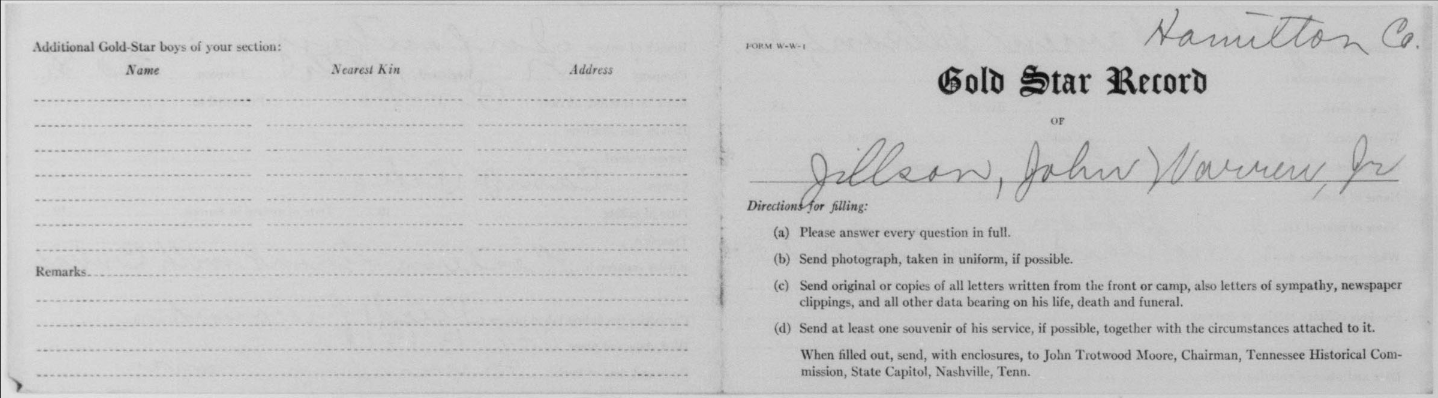 Additional Gold-Star boys of your section:
Name Nearest Kin Address
Remarks
FORM W-W-1
Hamilton Co.
Gold Star Record
OF
Jillson, John Warren, Jr
Directions for filling:
(a) Please answer every question in full.
(b) Send photograph, taken in uniform, if possible.
(c) Send original or copies of all letters written from the front or camp, also letters of sympathy, newspaper
clippings, and all other data bearing on his life, death and funeral.
(d) Send at least one souvenir of his service, if possible, together with the circumstances attached to it.
When filled out, send, with enclosures, to John Trotwood Moore, Chairman, Tennessee Historical Com-
mission, State Capitol, Nashville, Tenn.